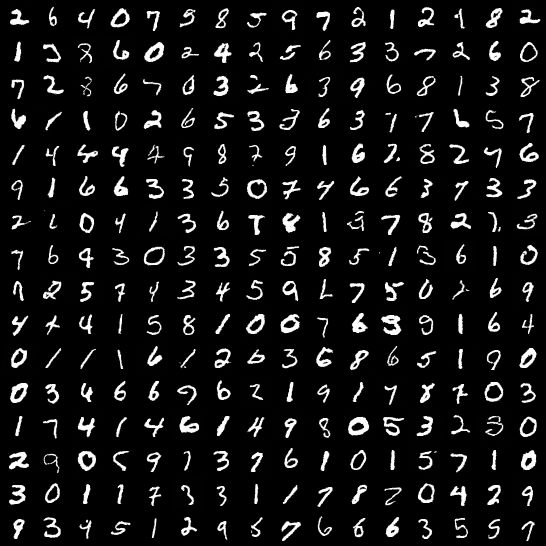 2 6 4 0 7 5 8 5 9 7 2 1 2 1 8 2
1 3 8 6 0 2 4 2 5 6 3 3 7 2 6 0
7 2 8 6 7 0 3 2 6 3 9 6 8 1 3 8
6 1 1 0 2 6 5 3 3 6 3 1 7 6 5 7
1 4 4 4 4 9 8 7 9 1 6 2 8 2 4 6
9 1 6 6 3 3 5 0 7 4 6 6 3 7 3 3
2 6 0 4 1 3 6 7 8 1 3 7 8 2 7 3
7 6 9 3 0 3 3 5 5 8 5 1 3 6 1 0
7 2 5 7 4 3 4 5 9 6 7 5 0 6 9
4 4 4 1 5 8 1 0 0 7 6 9 9 1 6 4
0 1 1 1 6 1 2 6 3 6 8 6 5 1 9 0
0 3 6 6 6 9 6 2 1 9 1 7 8 7 0 3
1 7 4 1 4 6 1 4 9 8 0 5 3 2 3 0
2 9 0 5 9 7 3 7 6 1 0 1 5 7 1 0
3 0 1 1 7 3 3 1 1 7 8 2 0 4 2 9
9 3 9 5 1 2 9 8 7 6 6 6 3 5 5 7